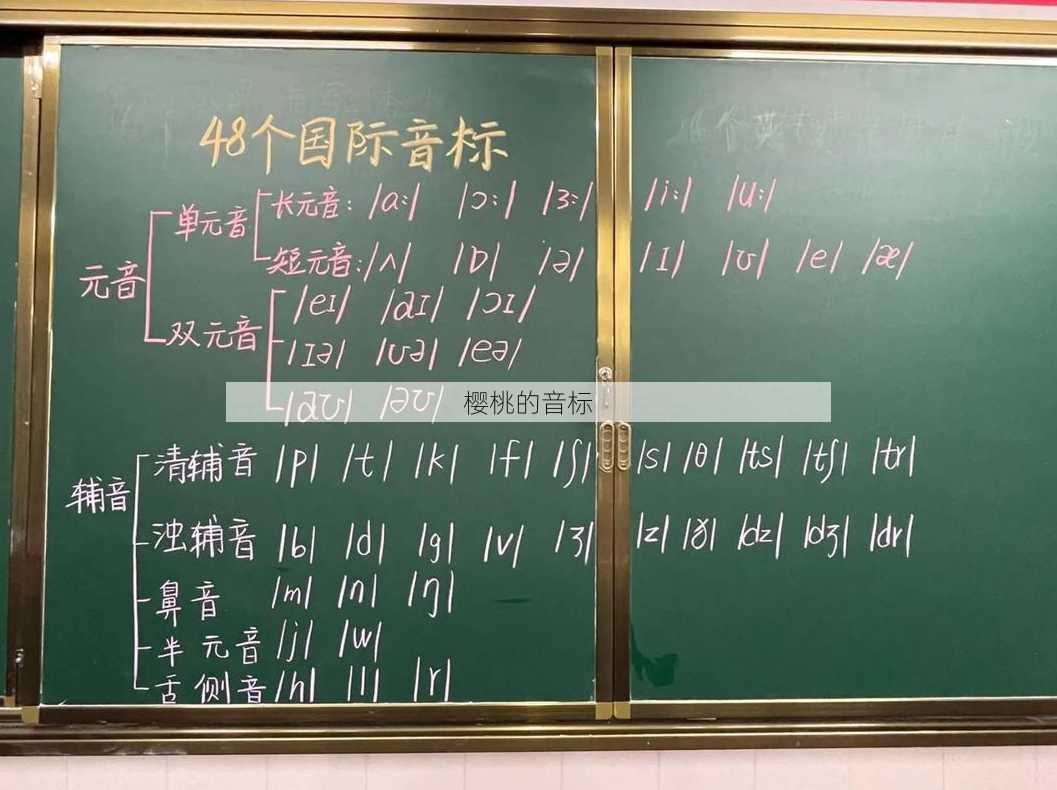 48个国际音标
元音
单元音
长元音: /a:/ /ɔ:/ /ɜ:/ /i:/ /u:/
短元音: /ʌ/ /ɒ/ /ə/ /ɪ/ /ʊ/ /e/ /æ/
双元音
/eɪ/ /aɪ/ /ɔɪ/
/ɪə/ /ʊə/ /eə/
/aʊ/ /əʊ/
樱桃的音标
辅音
清辅音 /p/ /t/ /k/ /f/ /ʃ/ /s/ /θ/ /ts/ /tʃ/ /tr/
浊辅音 /b/ /d/ /g/ /v/ /ʒ/ /z/ /ð/ /dz/ /dʒ/ /dr/
鼻音 /m/ /n/ /ŋ/
半元音 /j/ /w/
舌侧音 /h/ /l/ /r/